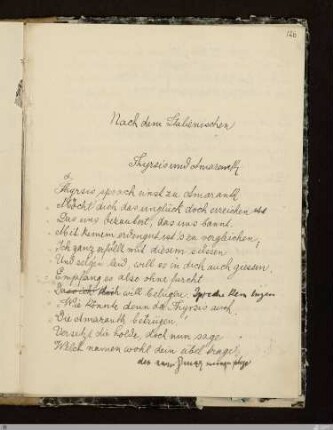 126
Nach dem Italienischen
Thyrsis und Amaranth
Thyrsis sprach einst zu Amaranth
Möcht dich das unglück doch erreichen
Das uns bezaubert, das uns bannt.
Mit keinem erdengut ist's zu vergleichen,
Ich ganz erfüllt mit diesem
Und will es in dich auch giessen,
Empfang es also ohne furcht
will betrügen. Spreche kein
Wie könnte denn da Thyrsis auch
Die Amaranth betrügen,
Versetzt die holde, doch nun sage
Welch namen wohl dein übel trage